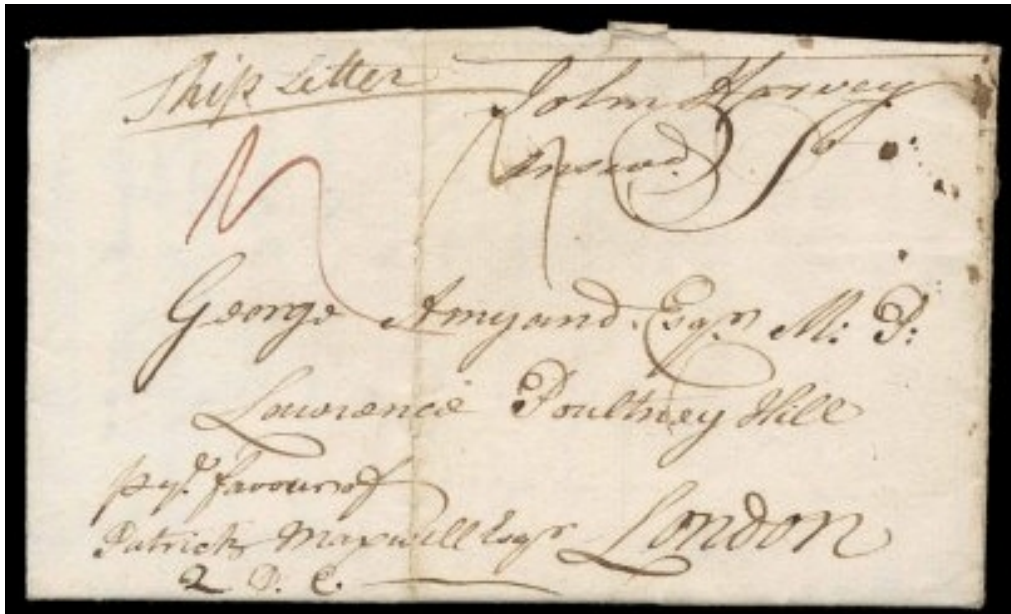 Ship Letter
John Harvey
George Amyand Esqr. M: P:
Laurence Poultney Hill
p yr. favour of
Patrick Maxwell Esqr London
2 D. C.